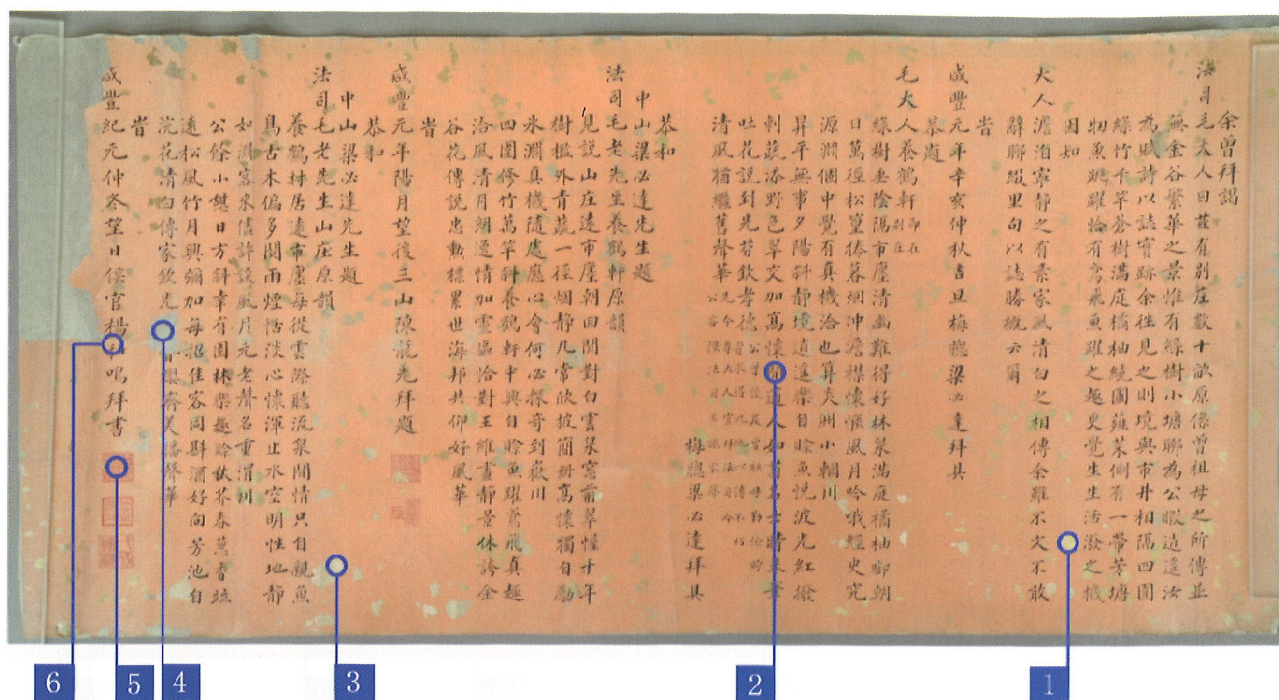 余曾拜謁
法司毛大人曰茲有別莊數十畝原係曾祖母之所傳並
無金谷繁華之景惟有綠樹小塘聯為公暇逍遙汝
為賦詩以誌實跡余往見之則境與市井相隔四圍
綠竹千竿蒼樹滿庭橘柚繞園蔬菜側有一帶芳塘
物魚跳躍恰有鳶飛魚躍之趣更覺生生活潑之機
因知
大人澹泊寧靜之有素家風清白之相傳余雖不文不敢
辭聯綴里句以誌勝概云爾
旹
咸豐元年辛亥仲秋吉旦梅憁梁必達拜具
恭題
毛大人養鶴軒即在別莊
綠樹垂陰隔市廛清幽難得好林泉滿庭橘柚郁朝
日萬徑松篁捲暮烟冲澹襟懷催風月吟哦經史究
源淵個中覺有真機洽也算炎洲小輞川
昇平無事夕陽斜靜境逍遙樂自賒魚悅波光紅撥
刺蔬添野色翠交加高懷道人如菊名士晴來筆
吐花説到先芬欽孝德
清風猶繼舊聲華
梅憁梁必達拜具
恭和
中山梁必達先生題
法司毛老先生養鶴軒原韻
見説山庄遠市廛朝回閒對白雲泉窓前翠幄十年
樹檻外青蔬一徑烟靜几常欣披簡冊高懷獨自勵
氷淵真機隨處應心會何必探奇到嶽川
四圍修竹萬竿斜養鶴軒中興自賒魚躍鳶飛真趣
洽風清月朗遯情加雲區恰對王維畫靜景休誇金
谷花傳説忠勳標累世海邦共仰好風華
旹
咸豐元年陽月望後三山陳龍光拜題
恭和
中山梁必達先生題
法司毛老先生山庄原韻
養鶴村居遠市廛每從雲際聽流泉閒情只自親魚
鳥古木偏多閱雨煙恬淡心懷渾止水空明性地靜
如淵客來儘許談風月元老聲名重渭川
公餘小憇日方斜幸有園林樂趣賒秋茶春蔥香竝
遠松風竹月興彌加每招佳客同斟酒好向芳池自
浣花清白傳家欽先
聲華
旹
咸豐紀元仲冬望日侯官楊鳴拜書
1
2
3
4
5
6